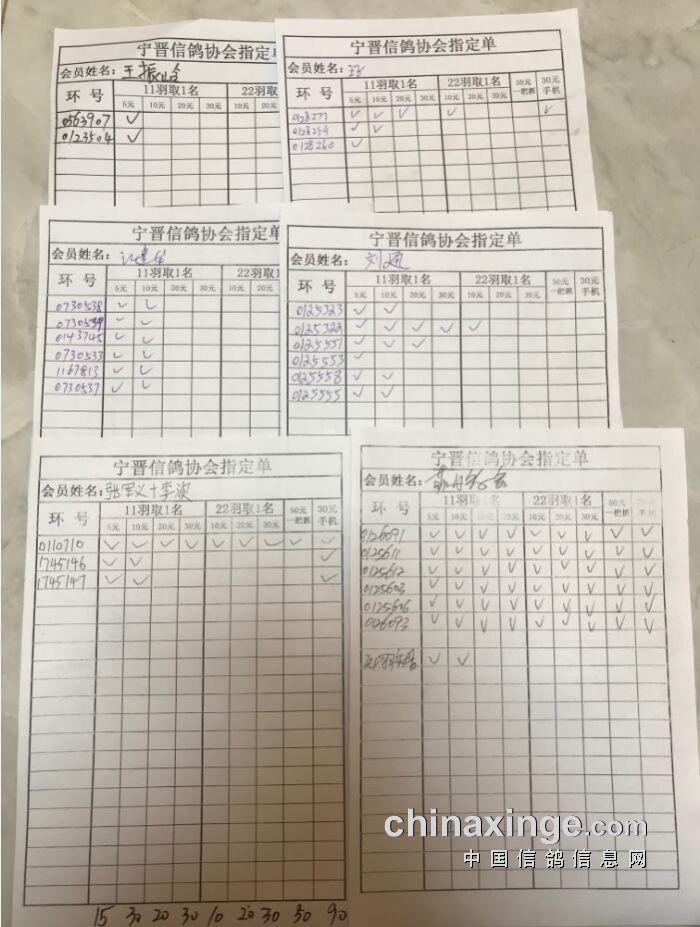 宁晋信鸽协会指定单
会员姓名：王振
环 号 11羽取1名 22羽取
5元 10元 20元 30元
0563907 ✓
0123504 ✓
宁晋信鸽协会指定单
会员姓名：
环 号 11羽取1名 22羽取1名 50元一把抓 30元手机
5元 10元 20元 30元 10元 20元 30元
0128277 ✓ ✓ ✓ ✓ ✓
0128259 ✓ ✓
0128260 ✓
宁晋信鸽协会指定单
会员姓名：
环 号 11羽取1名 22羽取
5元 10元 20元 30元
0730538 ✓ ✓
0730539 ✓ ✓
0143745 ✓ ✓
0730533 ✓ ✓
1167813 ✓ ✓
0730537 ✓ ✓
宁晋信鸽协会指定单
会员姓名：刘通
环 号 11羽取1名 22羽取1名 50元一把抓 30元手机
5元 10元 20元 30元 10元 20元 30元
0125323 ✓ ✓
0125322 ✓ ✓ ✓ ✓ ✓
0125551 ✓ ✓ ✓
0125553 ✓
0125558 ✓ ✓
0125555 ✓ ✓
宁晋信鸽协会指定单
会员姓名：张军义+李波
环 号 11羽取1名 22羽取1名 50元一把抓 30元手机
5元 10元 20元 30元 10元 20元 30元
0110710 ✓ ✓ ✓ ✓ ✓ ✓ ✓ ✓ ✓
1745146 ✓ ✓ ✓
1745147 ✓ ✓ ✓
15 30 20 30 10 20 30 50 90
宁晋信鸽协会指定单
会员姓名：
环 号 11羽取1名 22羽取1名 50元一把抓 30元手机
5元 10元 20元 30元 10元 20元 30元
0126091 ✓ ✓ ✓ ✓ ✓ ✓ ✓ ✓ ✓
0125611 ✓ ✓ ✓ ✓ ✓ ✓ ✓ ✓ ✓
0125612 ✓ ✓ ✓ ✓ ✓ ✓ ✓ ✓ ✓
0125603 ✓ ✓ ✓ ✓ ✓ ✓ ✓ ✓ ✓
0125606 ✓ ✓ ✓ ✓ ✓ ✓ ✓ ✓ ✓
0126093 ✓ ✓ ✓ ✓ ✓ ✓ ✓ ✓ ✓
✓ ✓
chinaxinge.com
中国信鸽信息网